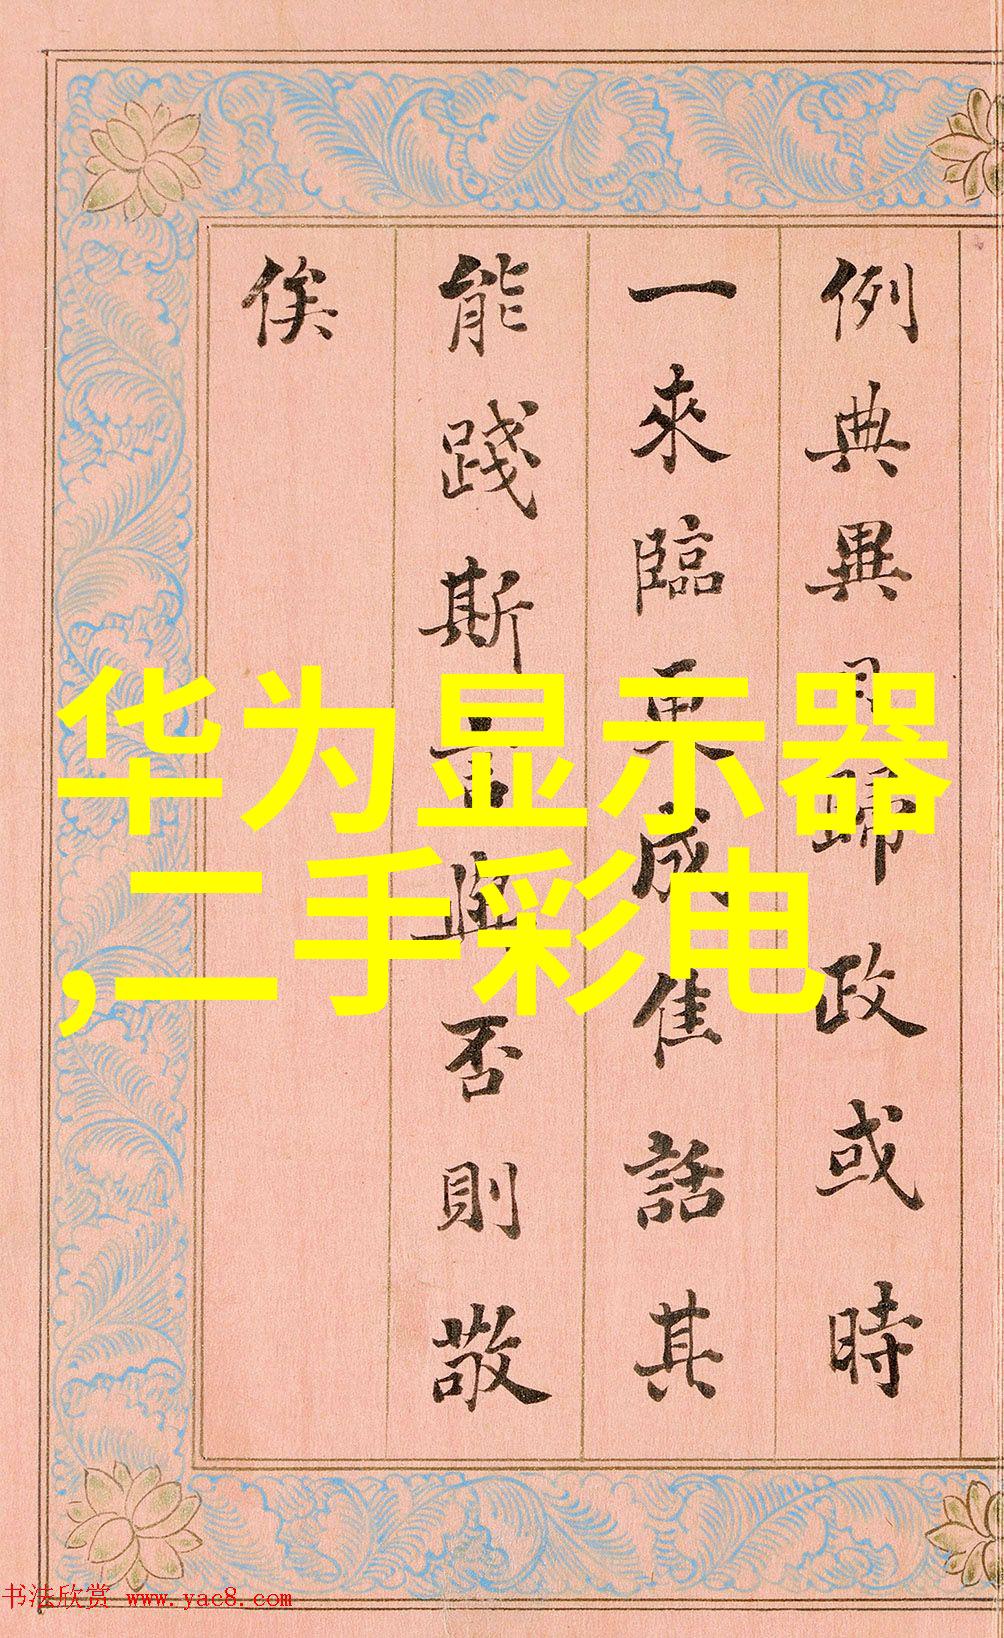 例典異日歸政或時
一來臨更感隹話其
能踐斯言與否則敬
俟
华为显示器
,二手彩电
书法欣赏 www.yac8.com